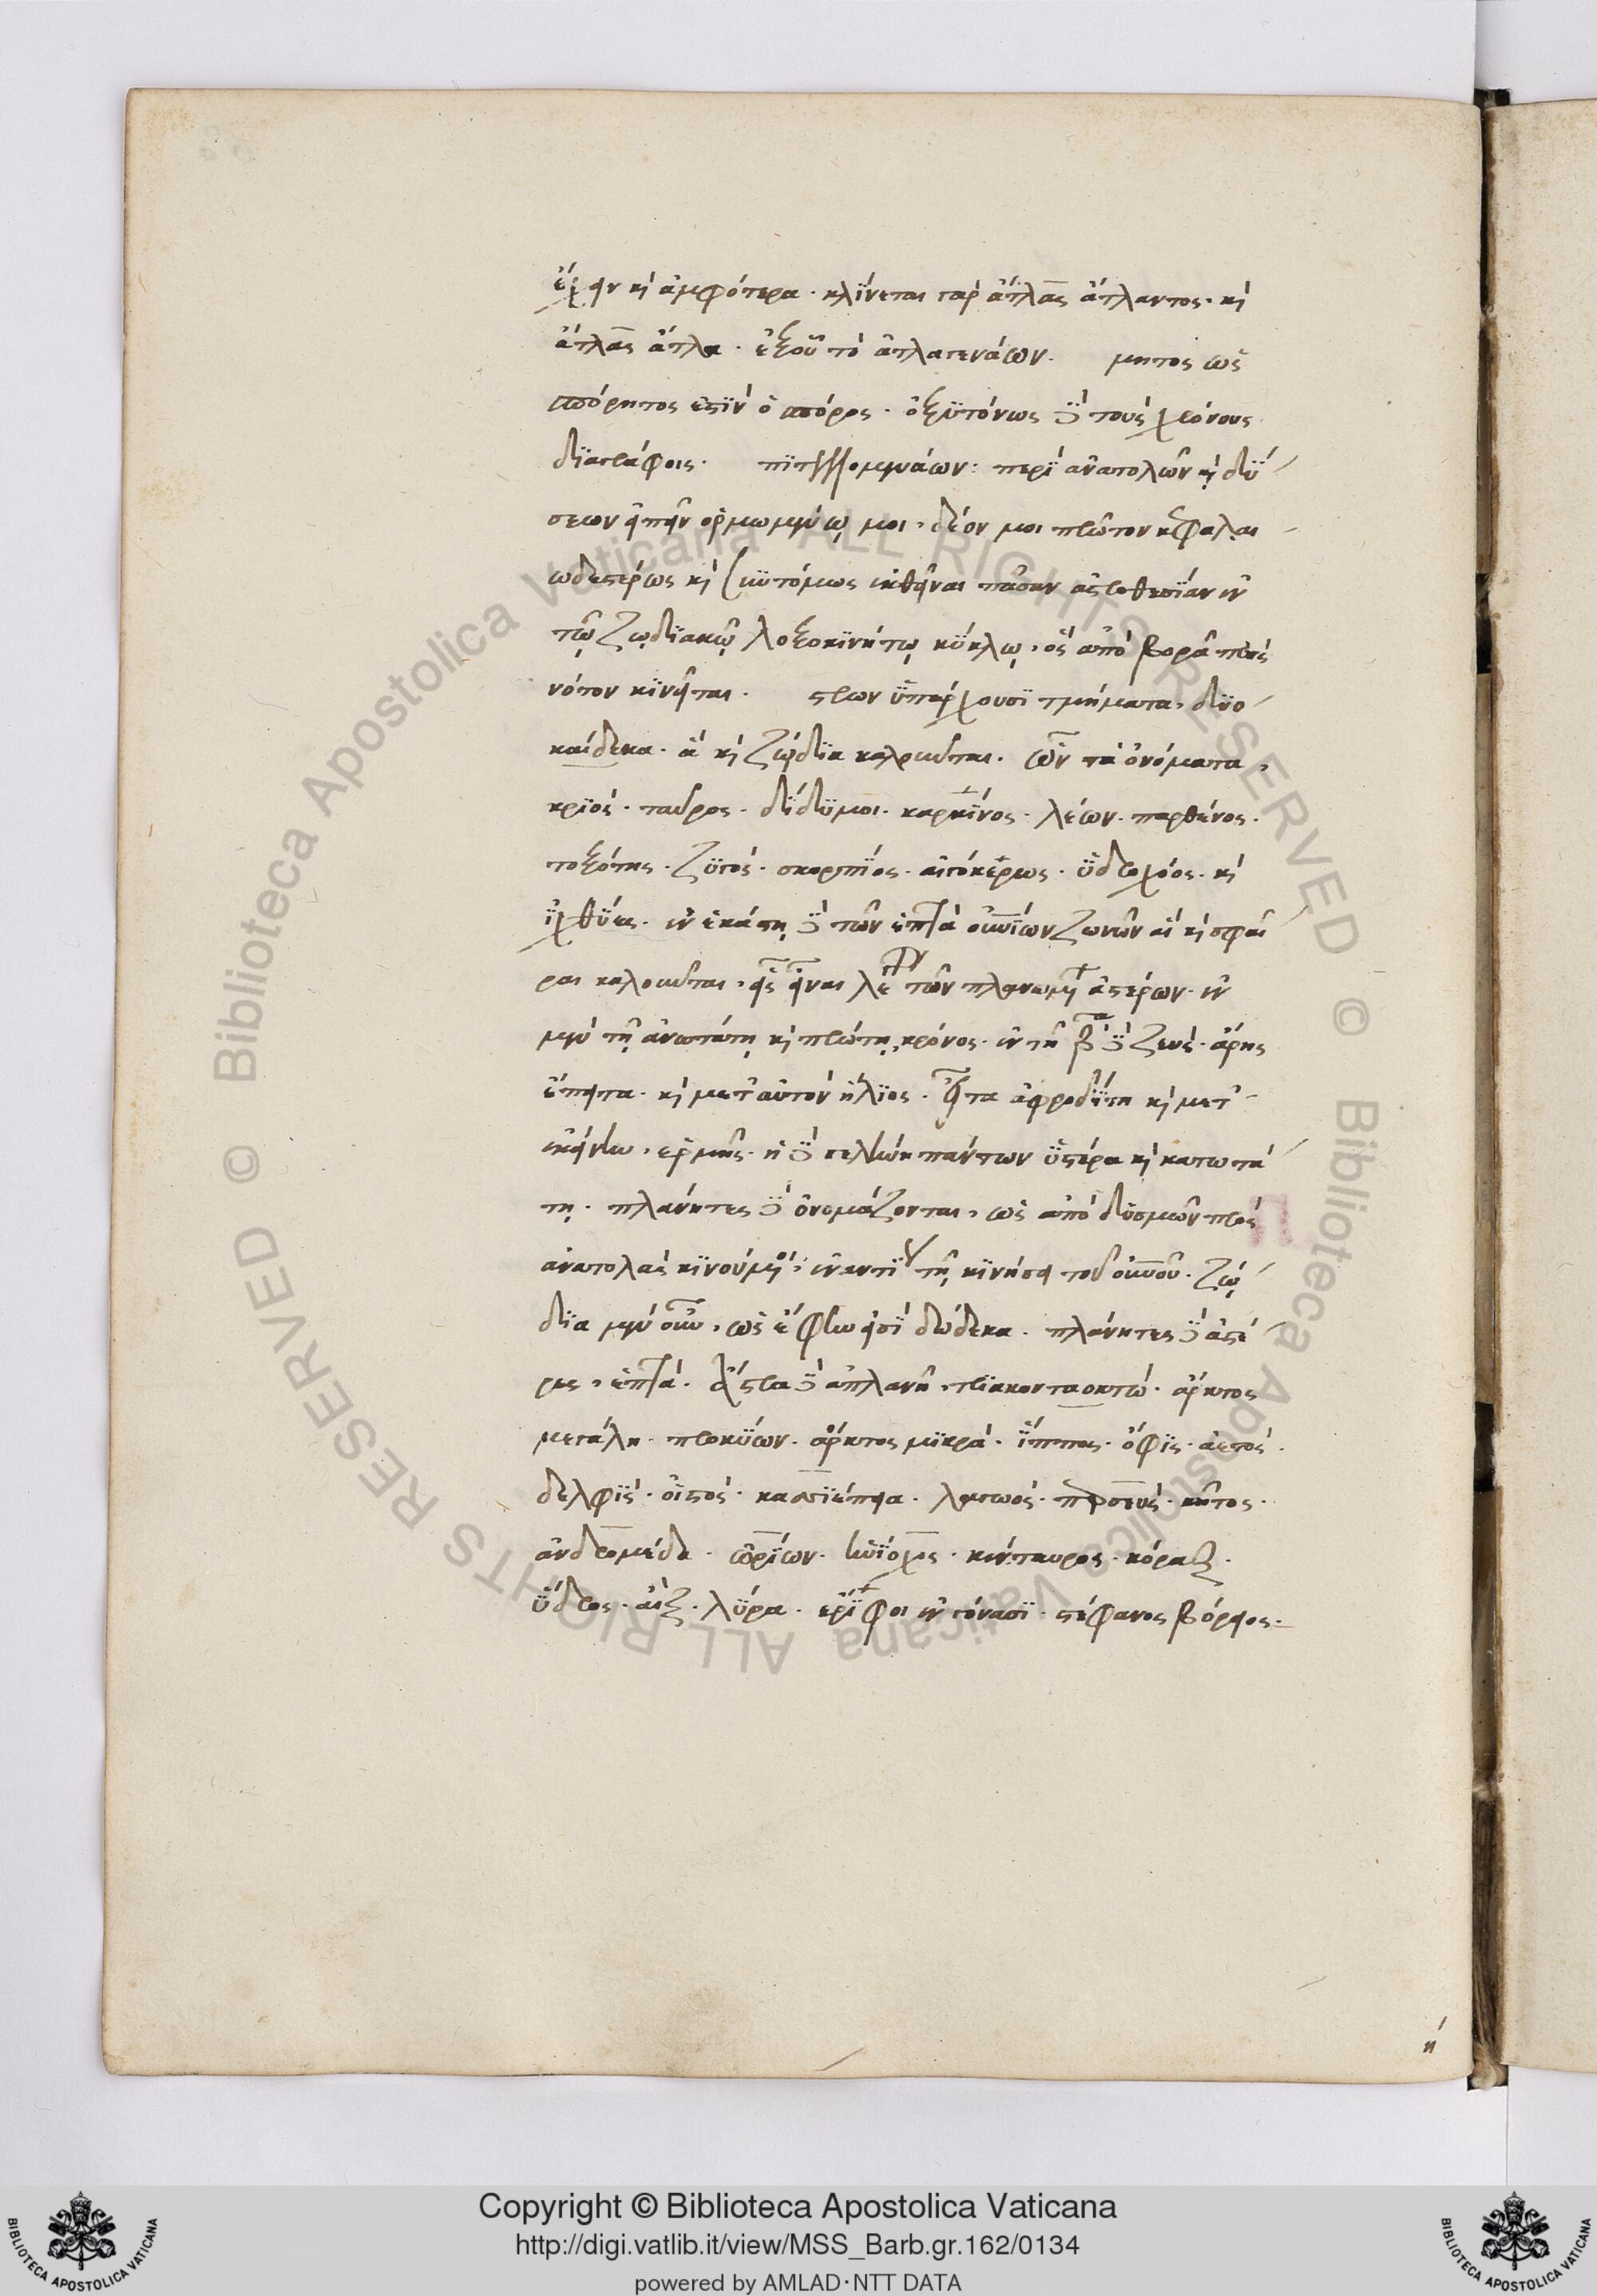 ἔχειν καὶ ἀμφότερα· κλίνεται γὰρ ἄτλας ἄτλαντος· καὶ
ἄτλας ἄτλα· ἐξοῦ τὸ ἀτλαγενάων. μητος ὡς
ἀπόρητος ἐστὶν ὁ ἀπόρος· ὀξυτόνως δὲ τοὺς χρόνους
διαγράφοις. περὶ ἀνατολῶν καὶ δύ
σεων εἰπεῖν ὁρμωμένω μοι, δέον μοι πρῶτον κεφαλαι
ωδεστέρως καὶ συντόμως ἐκθεῖναι πᾶσαν ἀστροθεσίαν ἐν
τῷ ζῳδϊακῷ λοξοκινήτῳ κύκλῳ, ὃς ἀπὸ βορᾶ πρὸς
νότον κινεῖται. ὑπάρχουσι τμήματα, δυο
καίδεκα· ἃ καὶ ζῴδια καλοῦνται. ὧν τὰ ὀνόματα,
κριός· ταῦρος· δίδυμοι· καρκίνος· λέων· παρθένος·
τοξότης· ζυγός· σκορπίος· αἰγόκερως· ὑδροχόος· καὶ
ἰχθύες. ἐν ἑκάστῃ δὲ τῶν ἑπτὰ οὐρανίων ζωνῶν αἳ καὶ σφαῖ
ραι καλοῦνται, εἷς εἶναι λέγεται τῶν πλανωμένων ἀστέρων. ἐν
μὲν τῇ ἀνωτάτῃ καὶ πρώτῃ, κρόνος· ἐν τῇ βα δὲ ζεύς· ἄρης
ἔπειτα· καὶ μετ αὐτὸν ἥλιος. εἶτα ἀφροδίτη καὶ μετ
ἐκείνην, ἑρμῆς· ἡ δὲ σελήνη πάντων ὑστέρα καὶ κατωτά
τη. πλάνητες δὲ ὀνομάζονται, ὡς ἀπὸ δυσμῶν πρὸς
ἀνατολὰς κινούμενοι, ἐναντίως τῇ κινήσει τοῦ οὐρανοῦ. ζῴ
δια μὲν οὖν, ὡς ἔφην εἰσὶ δώδεκα. πλάνητες δὲ ἀστέ
ρες, ἑπτά. ἄστρα δὲ ἀπλανῆ, τριακονταοκτώ. ἄρκτος
μεγάλη· προκύων· ἄρκτος μικρά· ἵππος· ὄφις· ἀετός·
δελφίς· οἰστός· κασσιέπεια· λαγωός· περσεύς· κῆτος·
ἀνδρομέδα· ὠρίων· ἡνίοχος· κένταυρος· κόραξ·
ὕδρος· αἴξ· λύρα· ἔριφοι ἐν γόνασι· στέφανος βόρειος.
ή
Copyright © Biblioteca Apostolica Vaticana
http://digi.vatlib.it/view/MSS_Barb.gr.162/0134
powered by AMLAD·NTT DATA